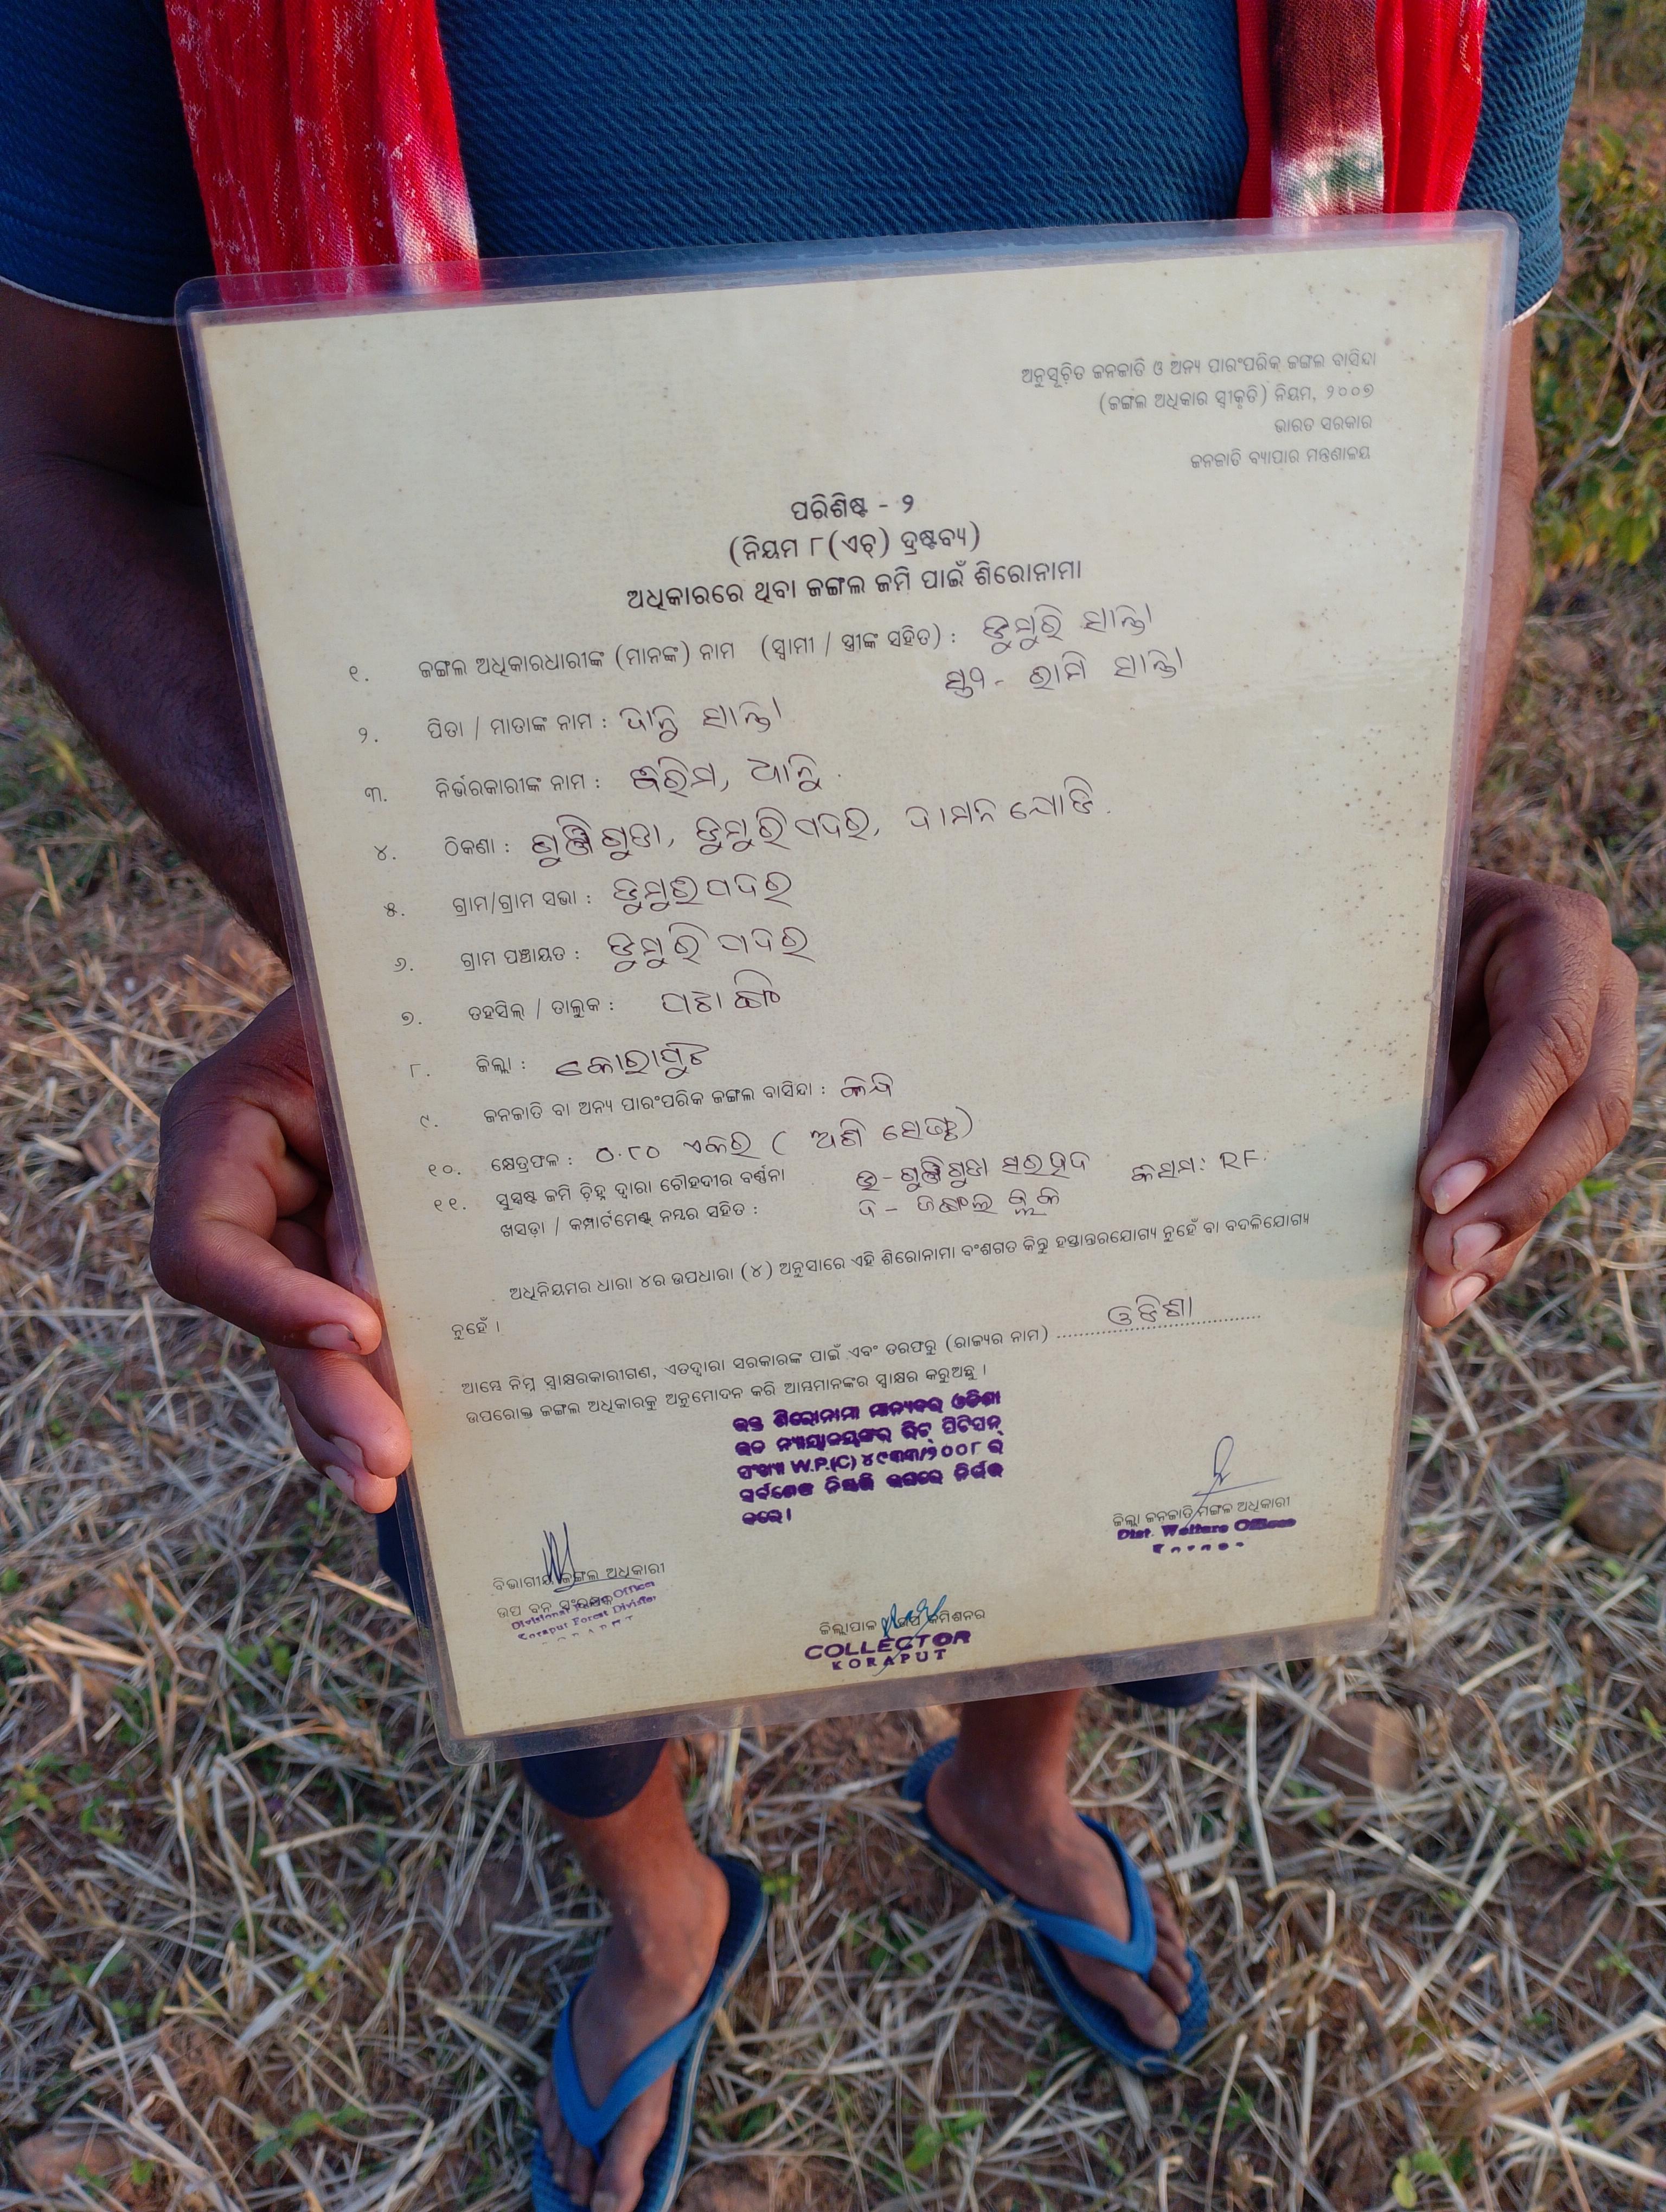 ଅନୁସୂଚିତ ଜନଜାତି ଓ ଅନ୍ୟ ପାରଂପରିକ ଜଙ୍ଗଲ ବାସିନ୍ଦା
(ଜଙ୍ଗଲ ଅଧିକାର ସ୍ୱୀକୃତି) ନିୟମ, ୨୦୦୭
ଭାରତ ସରକାର
ଜନଜାତି ବ୍ୟାପାର ମନ୍ତ୍ରଣାଳୟ
ପରିଶିଷ୍ଟ - ୨
(ନିୟମ ୮(ଏଚ୍) ଦ୍ରଷ୍ଟବ୍ୟ)
ଅଧିକାରରେ ଥିବା ଜଙ୍ଗଲ ଜମି ପାଇଁ ଶିରୋନାମା
୧. ଜଙ୍ଗଲ ଅଧିକାରଧାରୀଙ୍କ (ମାନଙ୍କ) ନାମ (ସ୍ୱାମୀ / ସ୍ତ୍ରୀଙ୍କ ସହିତ) : ଡୁମୁରି ସାନ୍ତା
ରାମି ସାନ୍ତା
୨. ପିତା / ମାତାଙ୍କ ନାମ : ଦାନୁ ସାନ୍ତା
୩. ନିର୍ଭରକାରୀଙ୍କ ନାମ : ଧାନୁ
୪. ଠିକଣା : ଗୁଞ୍ଜିଗୁଡା, ଡୁମୁରିପଦର, ଦାମନଯୋଡି.
୫. ଗ୍ରାମ/ଗ୍ରାମ ସଭା : ଡୁମୁରିପଦର
୬. ଗ୍ରାମ ପଞ୍ଚାୟତ : ଡୁମୁରିପଦର
୭. ତହସିଲ୍ / ତାଲୁକ : ପଟାଙ୍ଗି
୮. ଜିଲ୍ଲା : କୋରାପୁଟ
୯. ଜନଜାତି ବା ଅନ୍ୟ ପାରଂପରିକ ଜଙ୍ଗଲ ବାସିନ୍ଦା : କନ୍ଧ
୧୦. କ୍ଷେତ୍ରଫଳ : ୦.୮୦ ଏକର ( ଅଶି
୧୧. ସୁସ୍ପଷ୍ଟ ଜମି ଚିହ୍ନ ଦ୍ୱାରା ଚୌହଦୀର ବର୍ଣ୍ଣନା ଉ - ଗୁଞ୍ଜିଗୁଡା ସରହଦ କିସମ: RF.
ଖସଡ଼ା / କମ୍ପାର୍ଟମେଣ୍ଟ୍ ନମ୍ବର ସହିତ : ଦ - ଜଙ୍ଗଲ ବ୍ଲକ
ଅଧିନିୟମର ଧାରା ୪ର ଉପଧାରା (୪) ଅନୁସାରେ ଏହି ଶିରୋନାମା ବଂଶଗତ କିନ୍ତୁ ହସ୍ତାନ୍ତରଯୋଗ୍ୟ ନୁହେଁ ବା ବଦଳିଯୋଗ୍ୟ
ନୁହେଁ ।
ଆମ୍ଭେ ନିମ୍ନ ସ୍ୱାକ୍ଷରକାରୀଗଣ, ଏତଦ୍ୱାରା ସରକାରଙ୍କ ପାଇଁ ଏବଂ ତରଫରୁ (ରାଜ୍ୟର ନାମ) ଓଡିଶା
ଉପରୋକ୍ତ ଜଙ୍ଗଲ ଅଧିକାରକୁ ଅନୁମୋଦନ କରି ଆମ୍ଭମାନଙ୍କର ସ୍ୱାକ୍ଷର କରୁଅଛୁ ।
ଉକ୍ତ ଶିରୋନାମା ମାନ୍ୟବର ଓଡିଶା
ଉଚ୍ଚ ନ୍ୟାୟାଳୟଙ୍କର ରିଟ୍ ପିଟିସନ୍
ସଂଖ୍ୟା W.P.(C) ୪୯୩୩/୨୦୦୮ ର
ସର୍ବଶେଷ ନିଷ୍ପତ୍ତି ଉପରେ ନିର୍ଭର
କରେ ।
ଜିଲ୍ଲା ଜନଜାତି ମଙ୍ଗଳ ଅଧିକାରୀ
Dist. Welfare Officer
ବିଭାଗୀୟ ଜଙ୍ଗଲ ଅଧିକାରୀ
ଉପ ବନ ସଂରକ୍ଷକ
Divisional Forest Officer
Korapur Forest Division
ଜିଲ୍ଲାପାଳ କମିଶନର
COLLECTOR
KORAPUT